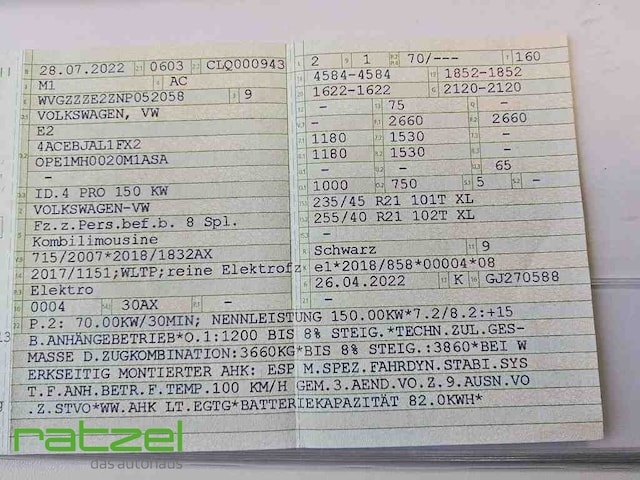 28.07.2022 0603 CLQ000943
M1 AC
WVGZZZE2ZNP052058 9
VOLKSWAGEN, VW
E2
4ACEBJAL1FX2
OPE1MH0020M1ASA
-
ID.4 PRO 150 KW
VOLKSWAGEN-VW
Fz.z.Pers.bef.b. 8 Spl.
Kombilimousine
715/2007*2018/1832AX
2017/1151;WLTP;reine Elektrofz
Elektro
0004 30AX -
2 1 70/--- 160
4584-4584 1852-1852
1622-1622 2120-2120
- 75 -
- 2660 2660
1180 1530 -
1180 1530 -
- - 65
1000 750 5 -
235/45 R21 101T XL
255/40 R21 102T XL
-
Schwarz 9
e1*2018/858*00004*08
26.04.2022 K GJ270588
-
P.2: 70.00KW/30MIN; NENNLEISTUNG 150.00KW*7.2/8.2:+15
B.ANHÄNGEBETRIEB*O.1:1200 BIS 8% STEIG.*TECHN.ZUL.GES-
MASSE D.ZUGKOMBINATION:3660KG*BIS 8% STEIG.:3860*BEI W
ERKSEITIG MONTIERTER AHK: ESP M.SPEZ.FAHRDYN.STABI.SYS
T.F.ANH.BETR.F.TEMP.100 KM/H GEM.3.AEND.VO.Z.9.AUSN.VO
.Z.STVO*WW.AHK LT.EGTG*BATTERIEKAPAZITÄT 82.0KWH*
ratzel
das autohaus